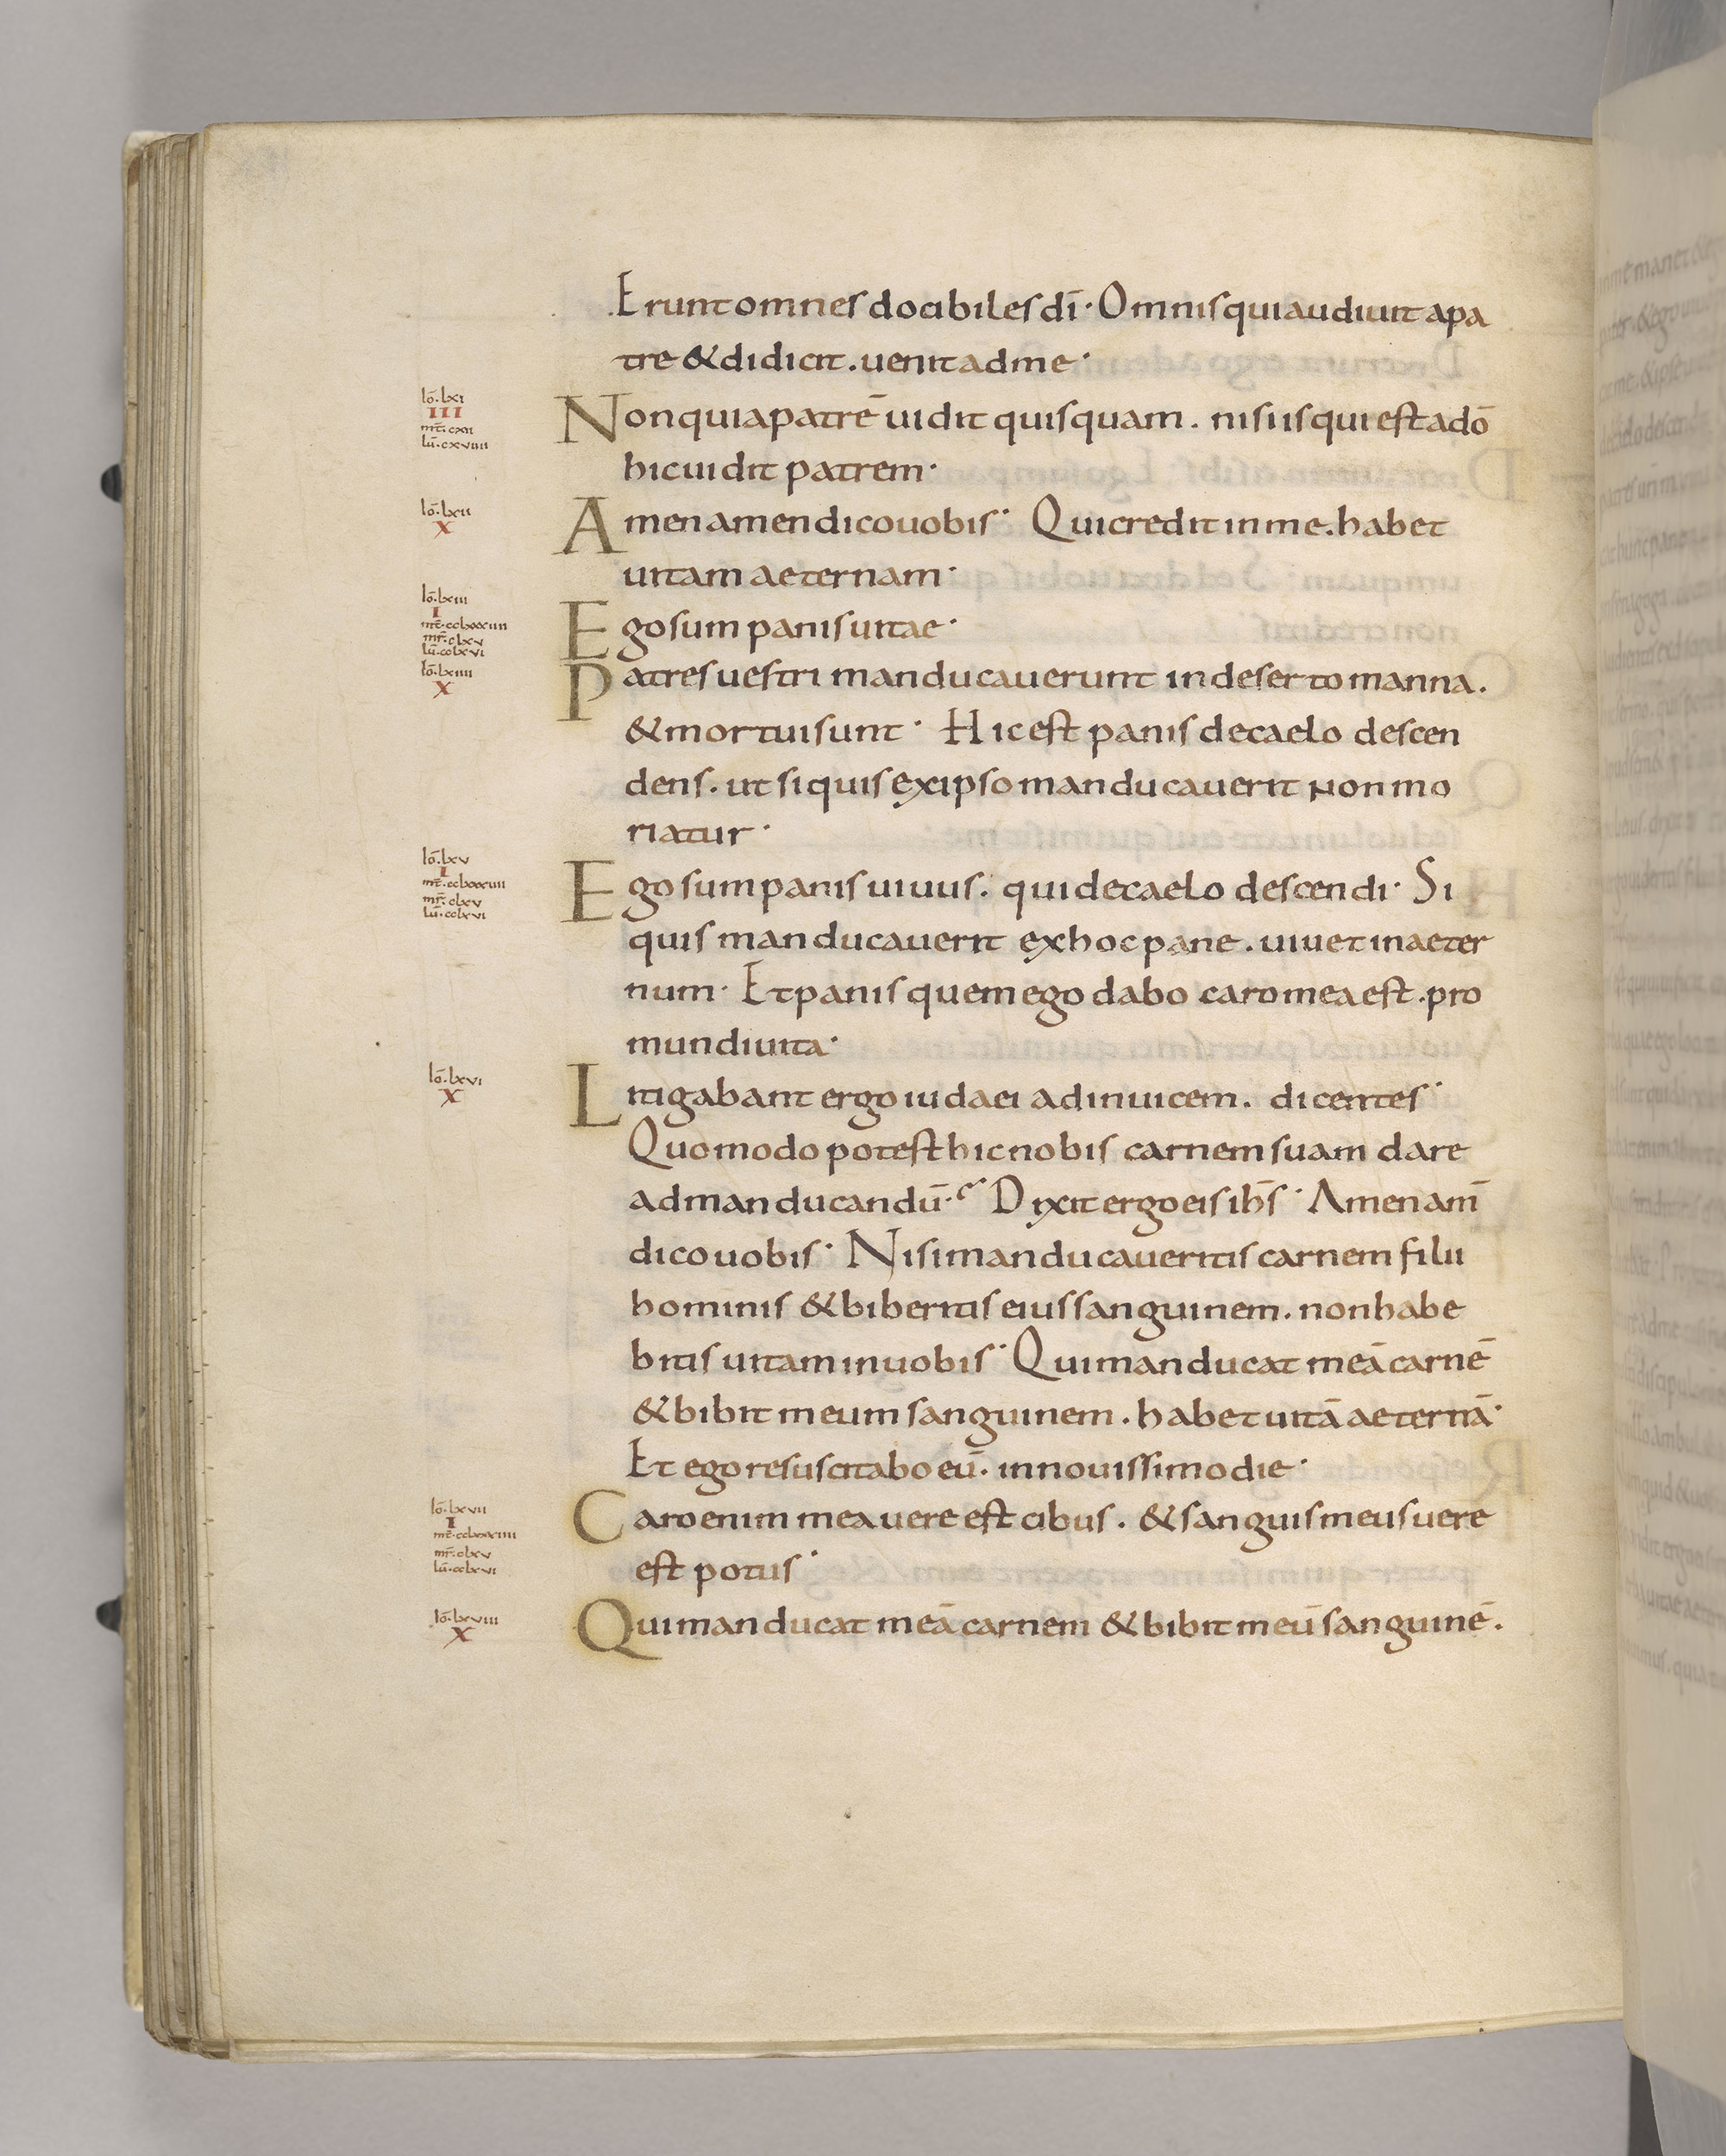 Erunt omnes docibiles dī· Omnis qui audiuit a pa
tre & didicit . uenit ad me·
iō·lxi
III
mt̄·cxii
lū·cxviiii
Non quia patrē uidit quisquam . nisi is qui est a dō
hic uidit patrem·
iō·lxii
X
Amen amen dico uobis· Qui credit in me . habet
uitam aeternam·
iō·lxiii
I
mr̄·clxv
lū·cclxvi
Ego sum panis uitae·
iō·lxiiii
X
Patres uestri manducauerunt in deserto manna .
& mortui sunt· Hic est panis de caelo descen
dens . ut si quis ex ipso manducauerit non mo
riatur·
iō·lxv
I
mr̄·clxv
lū·cclxvi
Ego sum panis uiuus . qui de caelo descendi· Si
quis manducauerit ex hoc pane . uiuet in aeter
num· Et panis quem ego dabo caro mea est . pro
mundi uita·
iō·lxvi
X
Litigabant ergo iudaei ad inuicem . dicentes·
Quomodo potest hic nobis carnem suam dare
ad manducandū· Dixit ergo eis ihs̄· Amen am̄
dico uobis· Nisi manducaueritis carnem filii
hominis & biberitis eius sanguinem . non habe
bitis uitam in uobis· Qui manducat meā carnē
& bibit meum sanguinem . habet uitā aeternā·
Et ego resuscitabo eū . in nouissimo die·
iō·lxvii
I
mr̄·clxv
lū·cclxvi
Caro enim mea uere est cibus . & sanguis meus uere
est potus·
iō·lxviii
X
Qui manducat meā carnem & bibit meū sanguinē .